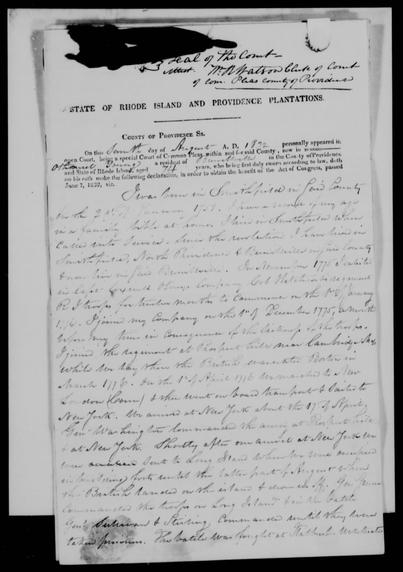 Seal of the Court
Attest Clerk of Court
of Com. Pleas County of Providence
STATE OF RHODE ISLAND AND PROVIDENCE PLANTATIONS.
COUNTY OF PROVIDENCE Ss.
On this day of August A. D. 1832 personally appeared in
open Court, being a special Court of Common Pleas, within and for said County, now in
a resident of Burrillville in the County of Providence,
and State of Rhode Island, aged 74 years, who being first duly sworn according to law, doth
on his oath make the following declaration, in order to obtain the benefit of the Act of Congress, passed
June 7, 1832, viz.
I was born in Smithfield in said County
on the of January 1758. I have a record of my age
in a family bible at home. I lived in Smithfield when
called into service. Since the revolution I have lived in
Smithfield, North Providence & Burrillville in said County
& now live in said Burrillville. In November 1775 I enlisted
in Capt Company Col regiment
R I troops for twelve months to commence on the 1st of January
1776. I joined my Company on the 1st of December 1775, a month
before my time in consequence of the of the troops.
I joined the regiment at Prospect hill near Cambridge
while we lay there the British evacuated Boston in
March 1776. On the 1st of April 1776 we marched to New
London & then went on board transports & sailed to
New York. We arrived at New York about the 17th of April.
Gen. Washington commanded the army at Prospect hill
& at New York. Shortly after our arrival at New York we
were sent to Long Island where we were occupied
in building forts until the latter part of August when
the British landed on the island & drove us off. Gen
commanded the troops on Long Island & in the battle
Genl Sullivan & Stirling commanded until they were
taken prisoners. The battle was fought at Flatbush